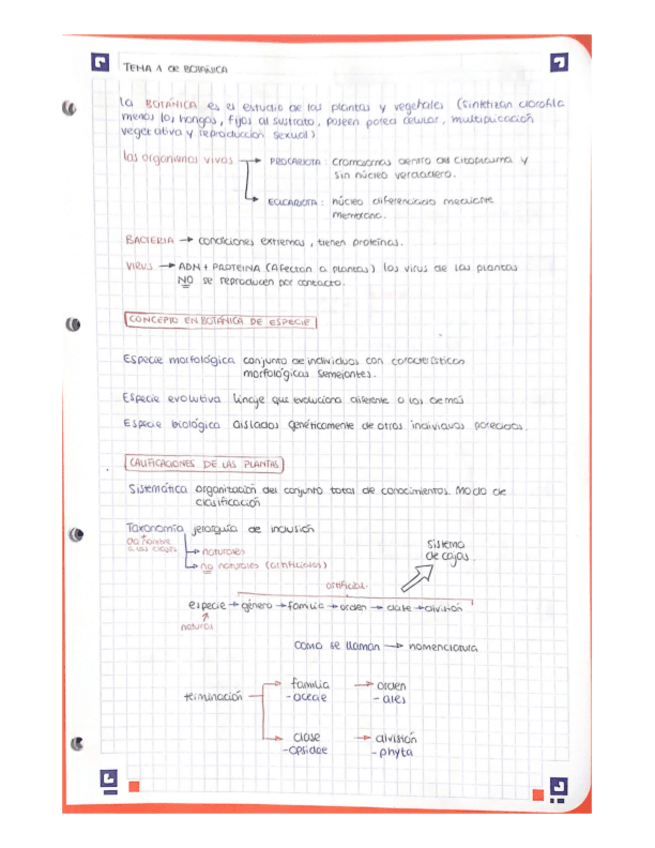 TEMA 1 DE BOTÁNICA
La BOTÁNICA es el estudio de las plantas y vegetales (sintetizan clorofila
menos los hongos, fijos al sustrato, poseen pared celular, multiplicación
vegetativa y reproducción sexual)
Los organismos vivos → PROCARIOTA: cromosomas dentro del citoplasma y
sin núcleo verdadero.
→ EUCARIOTA: núcleo diferenciado mediante
membrana.
BACTERIA → condiciones extremas, tienen proteínas.
VIRUS → ADN + PROTEINA (Afectan a plantas) los virus de las plantas
NO se reproducen por contacto.
CONCEPTO EN BOTÁNICA DE ESPECIE
Especie morfológica conjunto de individuos con características
morfológicas semejantes.
Especie evolutiva linaje que evoluciona diferente a los demás
Especie biológica aislados genéticamente de otros individuos parecidos.
CALIFICACIONES DE LAS PLANTAS
Sistemática organización del conjunto total de conocimientos. Modo de
clasificación
Taxonomía jerarquía de inclusión
da nombre
a las cajas
→ naturales
→ no naturales (artificiosos)
Sistema
de cajas
artificial
especie → género → familia → orden → clase → división
natural
como se llaman → nomenclatura
terminación → familia → orden
-aceae - ales
→ clase → división
-opsidae - phyta